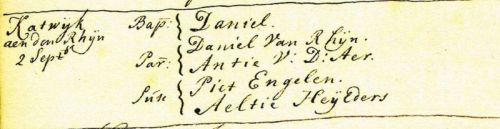 Katwijk
aen den Rhijn
2 Septr
Bap: Daniel.
Daniel Van Rhijn.
Par: Antie V: D: Aer.
Piet Engelen.
Sus Aeltie Heijlders